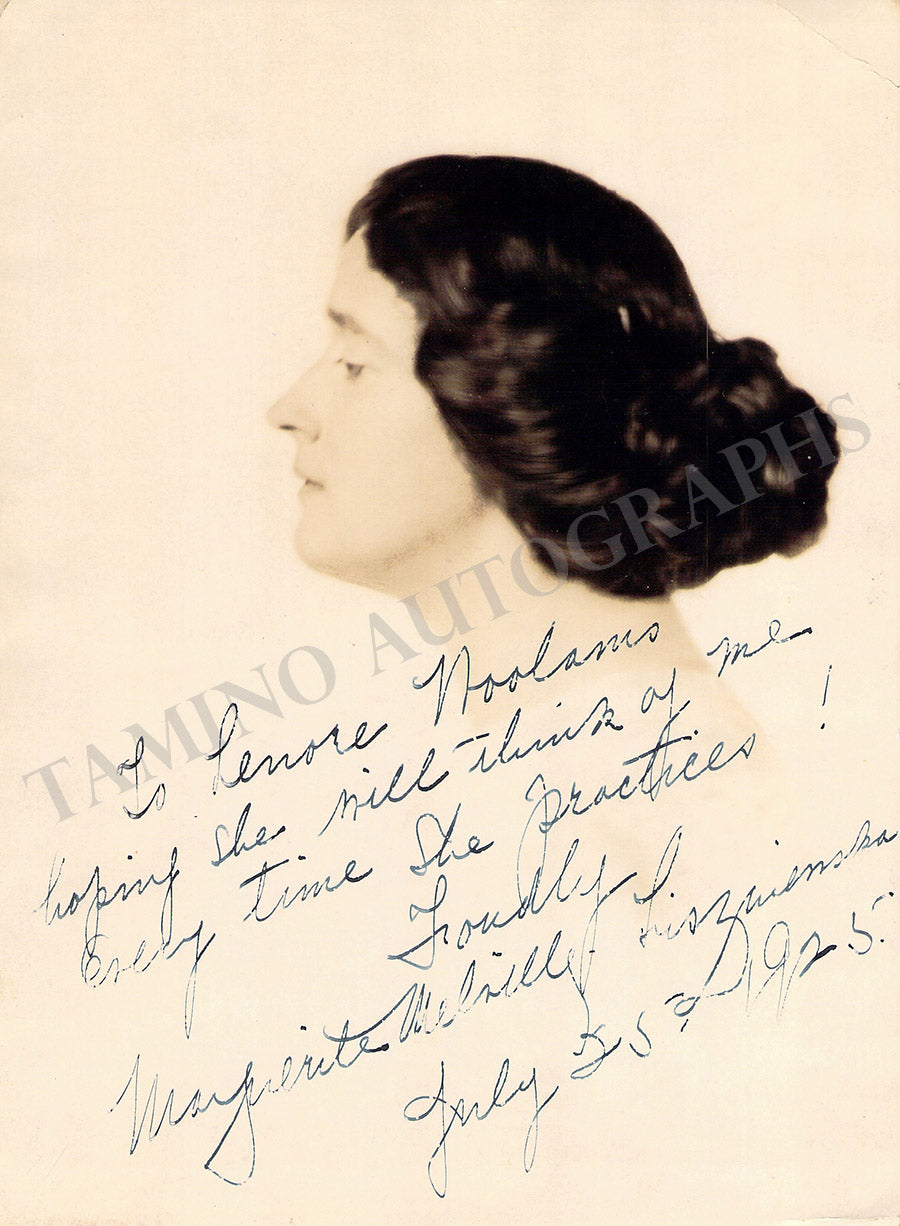 TAMINO AUTOGRAPHS
To Lenore Woolams
hoping she will think of me
every time she practices !
Fondly
Marguerite Melville Liszniewska
July 25th 1925.